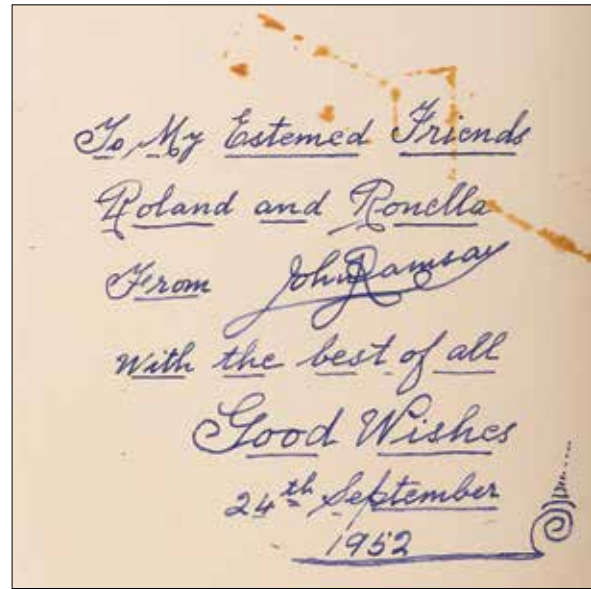 To My Estemed Friends
Roland and Ronella
From John Ramsay
With the best of all
Good Wishes
24th September
1952